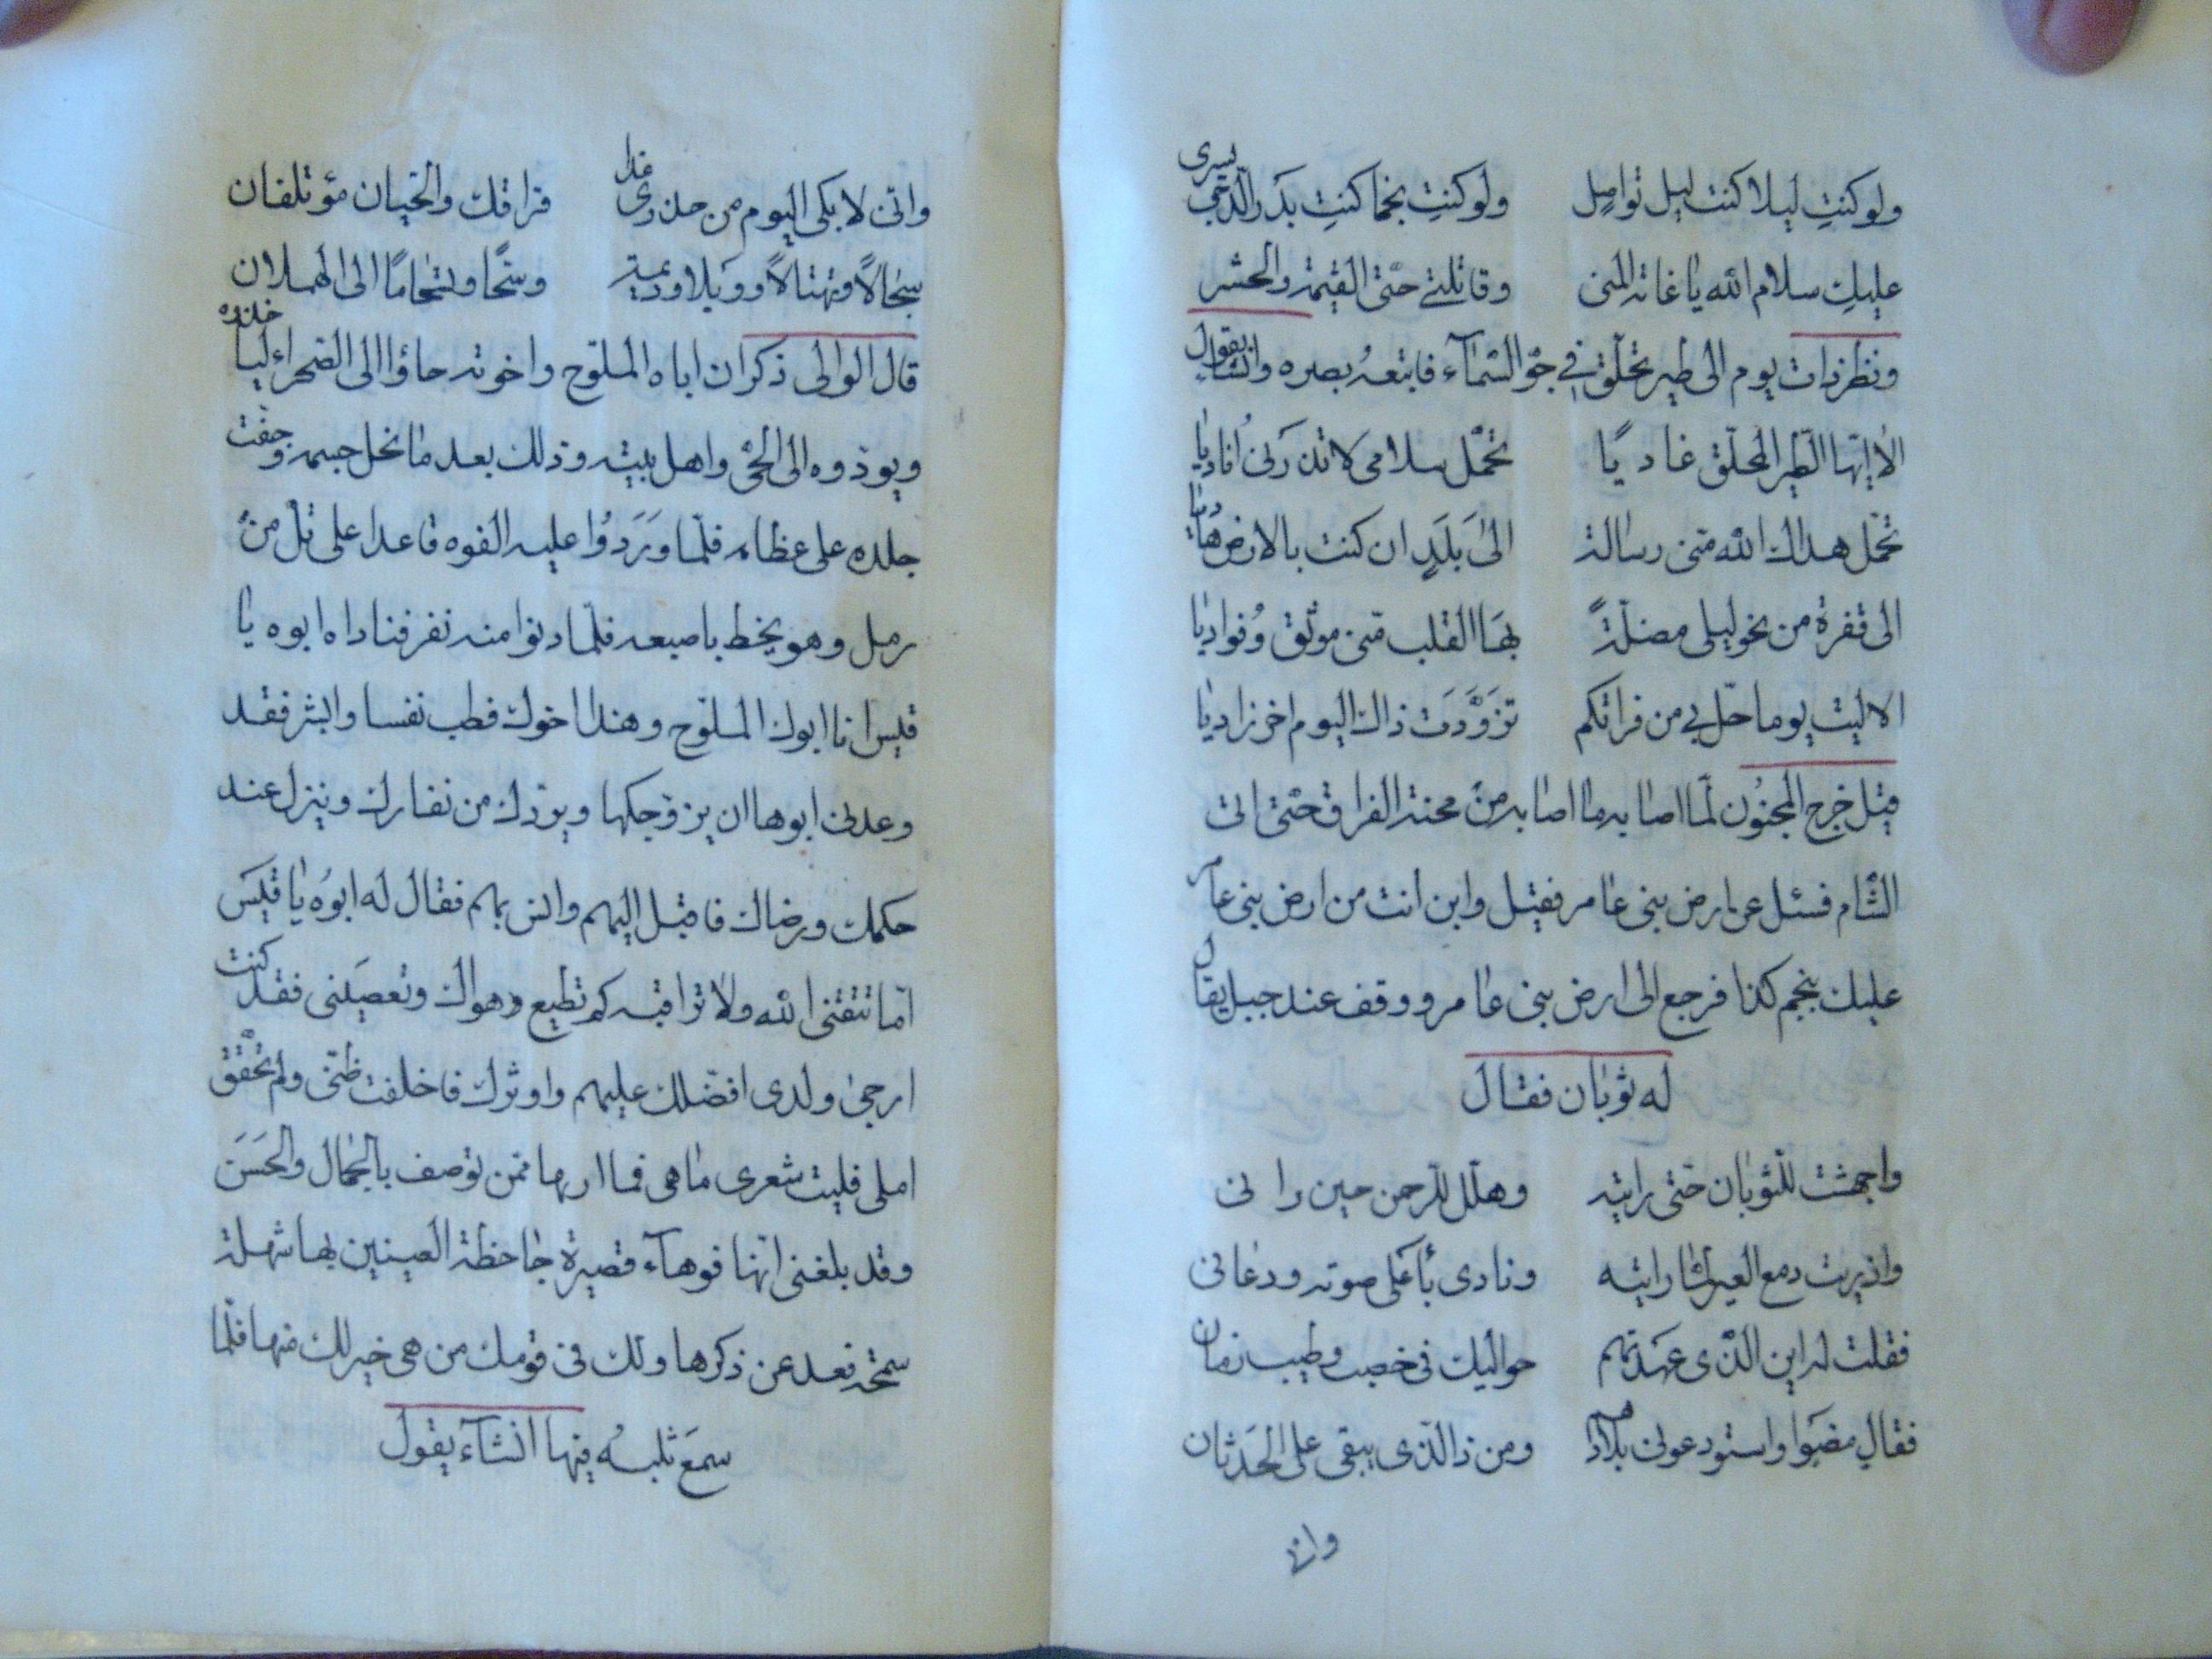 ولو كنتِ ليلا كنت ليل تواصل ولو كنتِ نجما كنتِ بدر الدجى يسرى
عليكِ سلام الله يا غاية المنى وقاتلتى حتى القيمة والحشر
ونظر ذات يوم الى طير تحلّق فى جوّ السمآء فاتبعهُ بصره وانشأ يقول
الا ايّها الطير المحلّق غاديًا تحمّل سلامى لا تذرنى اناديا
تحمّل هداك الله منّى رسالة الى بَلَدٍ ان كنت بالارض هاديا
الى قفرة من نحو ليلى مضلّةً بها القلب منّى موثق وفواديا
الا ليت يوما حلّ بى من فراقكم تزوّدت ذاك اليوم اخر زاديا
قيل خرج المجنون لمّا اصابه ما اصابه من محنة الفراق حتى اتى
الشام فسئل عن ارض بنى عامر فقيل واين انت من ارض بنى عامر
عليك بنجم كذا فرجع الى ارض بنى عامر ووقف عند جبل يقال
له ثوبان فقال
واجهشت للثوبان حتى رايته وهلّل للرحمن حين رانى
واذريت دمع العين لمّا رايته ونادى بأعلى صوته ودعانى
فقلت له اين الذى عهدتهم حواليك فى خصب وطيب زمان
فقال مضوا واستودعونى بلادهم ومن ذا الذى يبقى على الحدثان
وانى
وانى لابكى اليوم من حذرى غدا فراقك والحيان مؤتلفان
سجالاً وتهتالاً ووبلا وديمة وسحًّا وتسجامًا الى الهملان
قال الوالى ذكر ان اباه الملوّح واخوته جاؤا الى الصحراء لياخذوه
ويودوه الى الحىّ واهل بيته وذلك بعد ما نحل جسمه وجفّت
جلده على عظامه فلمّا وردوا عليه الفوه قاعدا على تلّ من
رمل وهو يخط باصبعه فلمّا دنوا منه نفر فناداه ابوه يا
قيس انا ابوك الملوّح وهذا اخوك فطب نفسا وابشر فقد
وعدنى ابوها ان يزوّجكها ويودك من نفارك وينزل عند
حكمك ورضاك فاقبل اليهم وانس بهم فقال له ابوهُ يا قيس
اما تتقى الله ولا تراقبه كم تطيع هواك وتعصينى فقد كنت
ارجى ولدى افضلك عليهم واوثرك فاخلفت ظنّى ولم تحقّق
املى فليت شعرى ما هى فما اراها ممن توصف بالجمال والحسن
وقد بلغنى انها فوهآء قصيرة جاحظة العينين بها شهلة
سمجة فعد عن ذكرها ولك فى قومك من هى خير لك منها فلمّا
سمع ثلبهُ فيها انشآء يقول